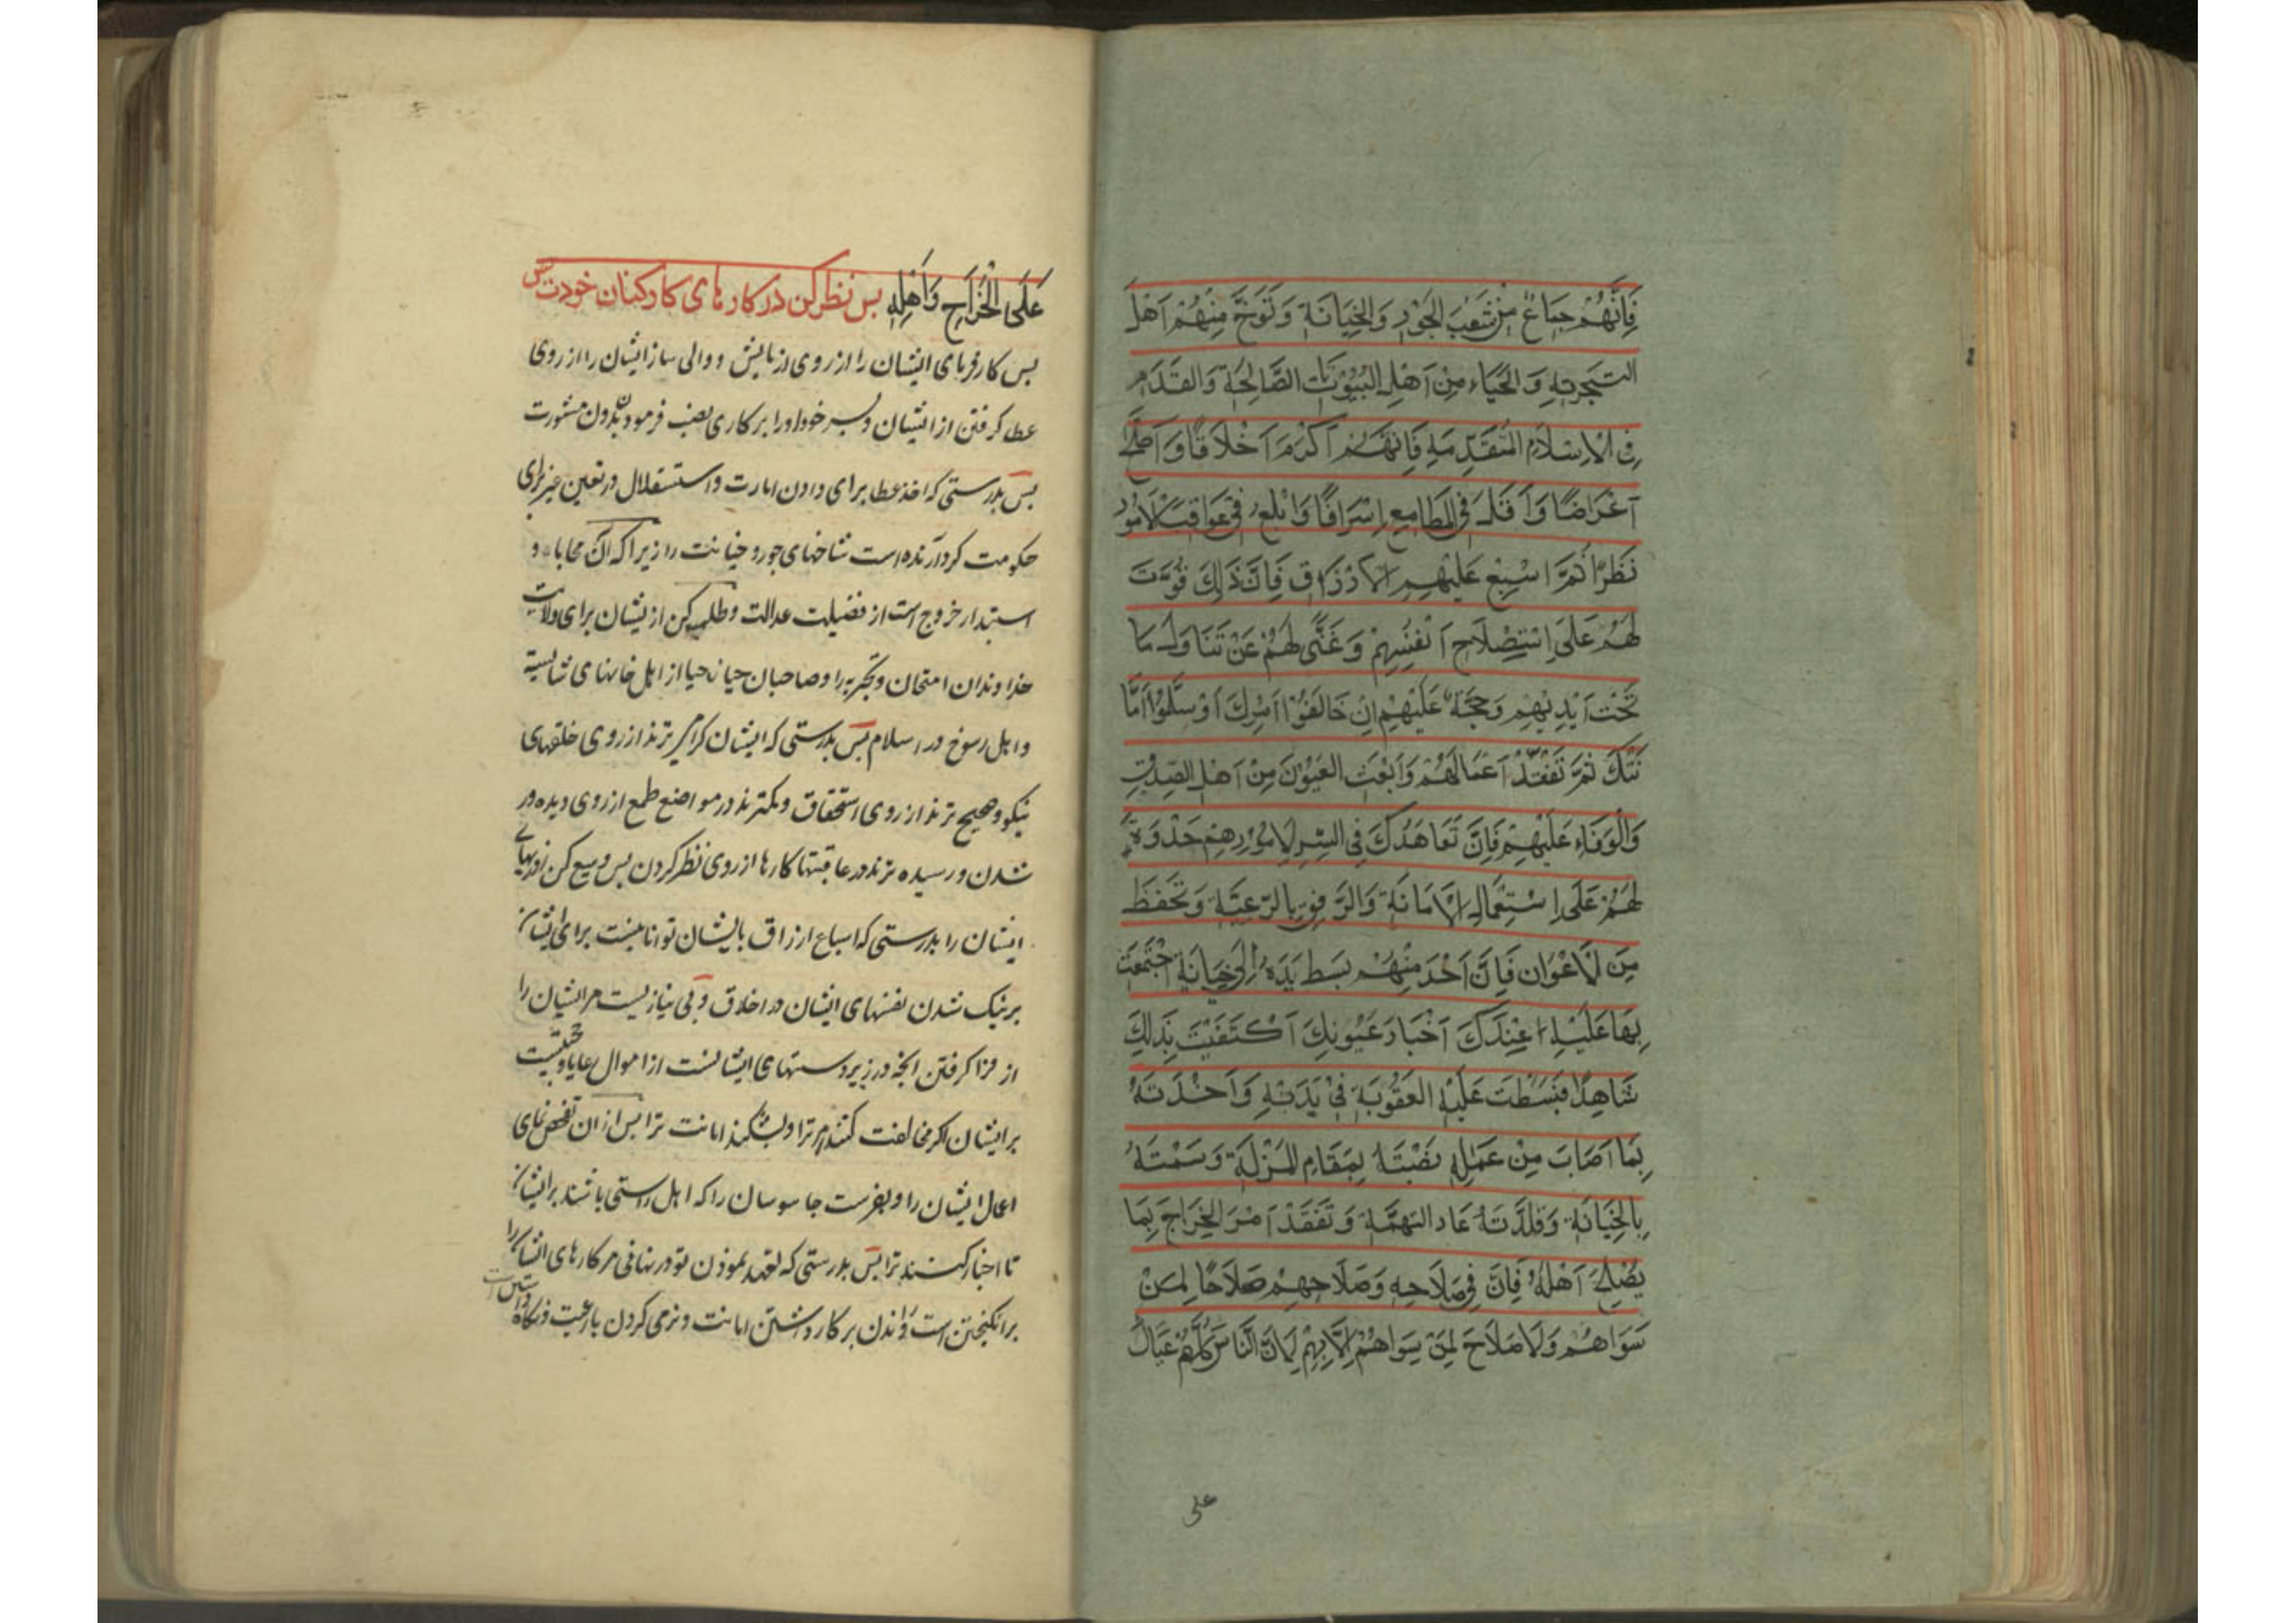 فَاِنَّهُمْ جِمَاعٌ مِنْ شُعَبِ الْجَوْرِ وَالْخِيَانَةِ وَتَوَخَّ مِنْهُمْ اَهْلَ
التَّجْرِبَةِ وَالْحَيَاءِ مِنْ اَهْلِ الْبُيُوْتَاتِ الصَّالِحَةِ وَالْقَدَمِ
فِي الْاِسْلَامِ الْمُتَقَدِّمَةِ فَاِنَّهُمْ اَكْرَمُ اَخْلَاقًا وَاَصَحُّ
اَعْرَاضًا وَاَقَلُّ فِي الْمَطَامِعِ اِشْرَافًا وَاَبْلَغُ فِي عَوَاقِبِ الْاُمُوْرِ
نَظَرًا ثُمَّ اَسْبِغْ عَلَيْهِمُ الْاَرْزَاقَ فَاِنَّ ذٰلِكَ قُوَّةٌ
لَهُمْ عَلَى اِسْتِصْلَاحِ اَنْفُسِهِمْ وَغَنًى لَهُمْ عَنْ تَنَاوُلِ مَا
تَحْتَ اَيْدِيْهِمْ وَحُجَّةٌ عَلَيْهِمْ اِنْ خَالَفُوْا اَمْرَكَ اَوْ ثَلَمُوْا اَمَا
نَتَكَ ثُمَّ تَفَقَّدْ اَعْمَالَهُمْ وَابْعَثِ الْعُيُوْنَ مِنْ اَهْلِ الصِّدْقِ
وَالْوَفَاءِ عَلَيْهِمْ فَاِنَّ تَعَاهُدَكَ فِي السِّرِّ لِاُمُوْرِهِمْ حَدْوَةٌ
لَهُمْ عَلَى اِسْتِعْمَالِ الْاَمَانَةِ وَالرِّفْقِ بِالرَّعِيَّةِ وَتَحَفَّظْ
مِنَ الْاَعْوَانِ فَاِنْ اَحَدٌ مِنْهُمْ بَسَطَ يَدَهُ اِلَى خِيَانَةٍ اجْتَمَعَتْ
بِهَا عَلَيْهِ عِنْدَكَ اَخْبَارُ عُيُوْنِكَ اَكْتَفَيْتَ بِذٰلِكَ
شَاهِدًا فَبَسَطْتَ عَلَيْهِ الْعُقُوْبَةَ فِيْ بَدَنِهِ وَاَخَذْتَهُ
بِمَا اَصَابَ مِنْ عَمَلِهِ نَصَبْتَهُ بِمَقَامِ الْمَذَلَّةِ وَسَمْتَهُ
بِالْخِيَانَةِ وَقَلَّدْتَهُ عَارَ التُّهَمَةِ وَتَفَقَّدْ اَمْرَ الْخَرَاجِ بِمَا
يُصْلِحُ اَهْلَهُ فَاِنَّ فِيْ صَلَاحِهِ وَصَلَاحِهِمْ صَلَاحًا لِمَنْ
سَوَاهُمْ وَلَا صَلَاحَ لِمَنْ سِوَاهُمْ اِلَّا بِهِمْ لِاَنَّ النَّاسَ كُلَّهُمْ عِيَالٌ
على
عَلَى الْخَرَاجِ وَاَهْلِهِ پس نظر کن در کارهای کارکنان خودت
پس کار فرمای ایشان را از روی ازمایش و والی ساز ایشان را از روی
عطا کرفتن از ایشان و بسر خود او را بر کاری نصب فرمودن بدون مشورت
پس بدرستی که اخذ عطا برای دادن امارت و استقلال در تعین غیر برای
حکومت کرد آرنده است شاخهای جور و خیانت را زیرا که آن محاباة و
استبدار خروج است از فضیلت عدالت و طلب کن از یشان برای ولایت
خداوندان امتحان و تجربه را و صاحبان حیا از اهل خانهای شایسته
و اهل رسوخ در اسلام پس بدرستی که ایشان کرامی ترند از روی خلقهای
نیکو و صحیح ترند از روی استحقاق و کمترند در مواضع طمع از روی دیده ور
شدن و رسیده ترند در عاقبتها کارها از روی نظر کردن پس وسیع کن روزیهای
ایشان را بدرستی که اسباغ ارزاق بایشان توانائیست برای ایشان
بر نیک شدن نفسهای ایشان در اخلاق و بی نیازیست مر ایشان را
از فرا کرفتن انچه در زیر دستهای ایشانست از اموال رعایا و حجتیست
بر ایشان اکر مخالفت کنند امر ترا و بشکنند امانت ترا پس از ان تفحص نمای
اعمال ایشان را و بفرست جاسوسان را که اهل راستی باشند بر ایشان
تا اخبار کنند ترا پس بدرستی که تعهد نمودن تو در نهانی مر کارهای ایشان را
بر انکیختن است و راندن بر کار داشتن امانت و نرمی کردن با رعیت و نکاه